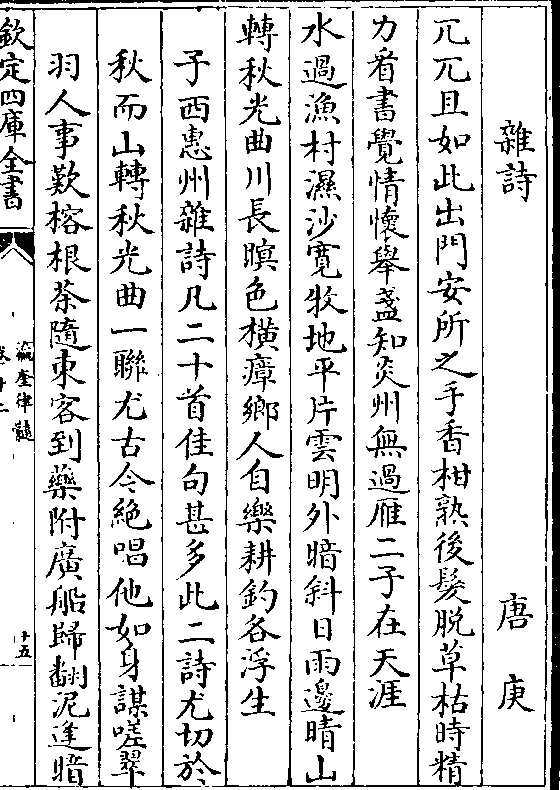 雜詩 唐庚
兀兀且如此出門安所之手香柑熟後髮脱草枯時精
力看書覺情懷舉盞知炎州無過雁二子在天涯
水過漁村濕沙寛牧地平片雲明外暗斜日雨邊晴山
轉秋光曲川長暝色横瘴鄉人自樂耕釣各浮生
子西惠州雜詩凡二十首佳句甚多此二詩尤切於
秋而山轉秋光曲一聯尤古今絶唱他如身謀嗟翠
羽人事歎榕根茶隨東客到藥附廣船歸翻泥逢暗
欽定四庫全書
瀛奎律髓
十五